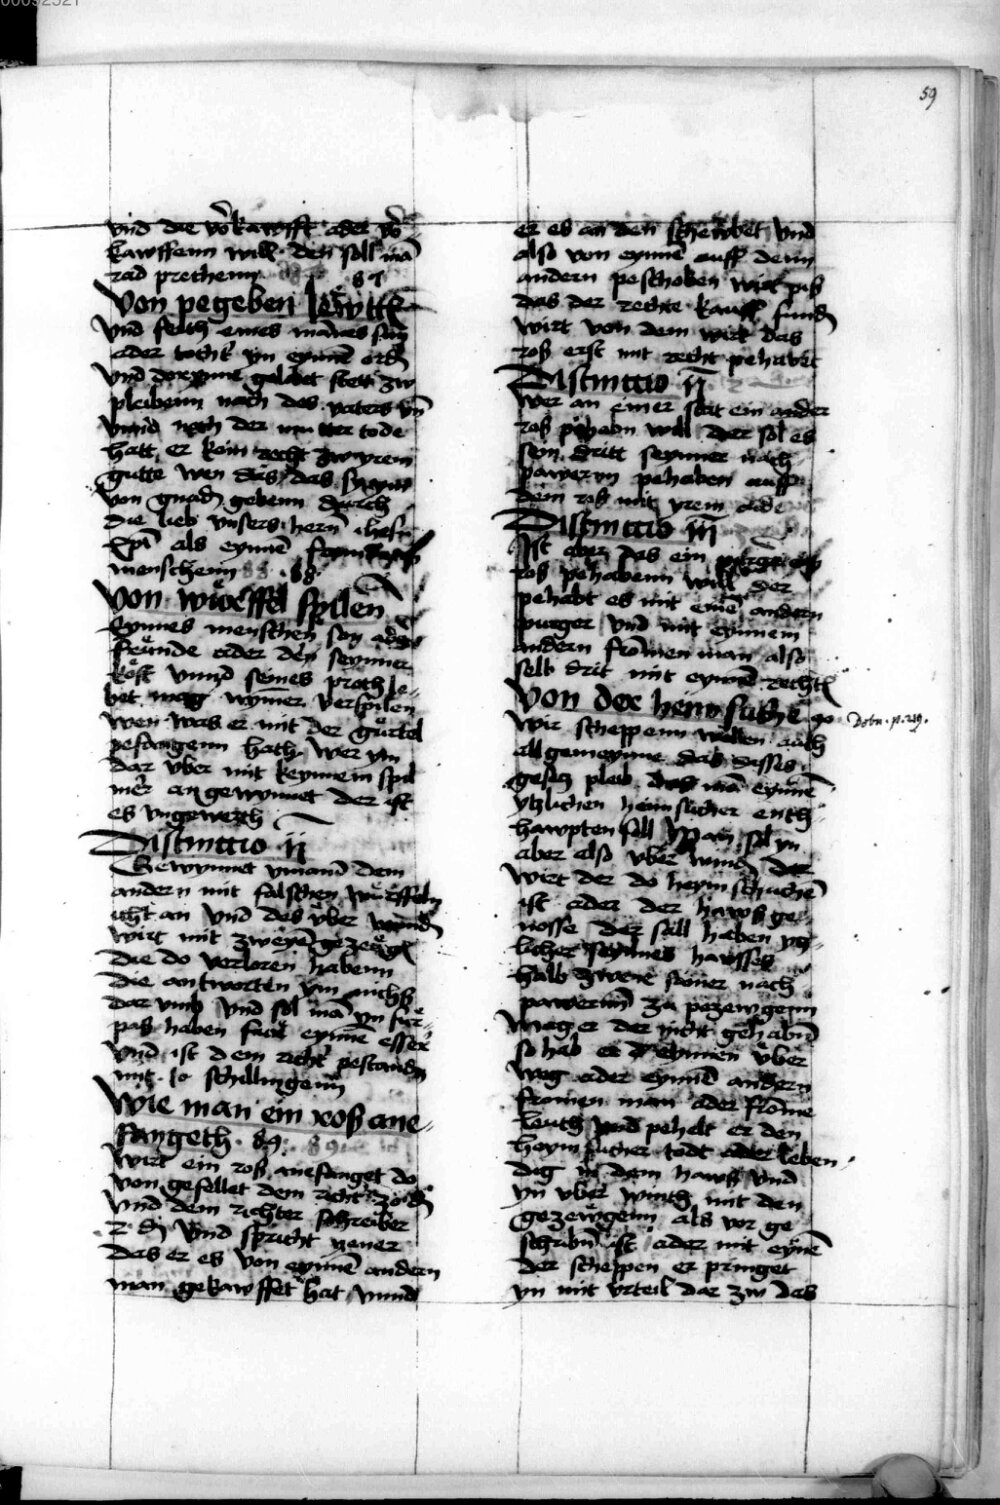 00092521
59
vnd die v̾kawfft ader v̾-
kawffenn will den soll mā
rad prechenn 87
Von pegeben lewttē
Vnd fertħ eines mānes sun
ader tocht̾ yn eynnē ordn̄
Vnd doreynne gelobet stett zw
pleibenn nach des vaters vn̄
vnnd noch der mutter tode
hatt er kein recht zw yrem
gutte wen das, das sy ym
von gnadn̄ gebenn durch
die lieb vnsers hern̄ ihesu
xpī als eynnē
menschenn 88
Von wüerffel spillen
Eynnes menschen son ader
freunde ader den seynner
kost vnnd seines prots le-
bet mag nymer verspilen
wen was er mit der gürtel
vmfangenn hatħ Wer ym
dar vber mit keynnem spil
mer an gewynnet der ist
es vngewerħ
Distinctio ij
Gewynnet ymand dem
andern mit falschen wurffeln
icht an vnd des vber wundn̄
wirt mit zweyen gezewgn̄
die do verloren habenn
die antworten ym nichß
dar vmb vnd sol mā yn fur
paß haben fur eynnē esser
vnd ist dem richt̾ pestandn̄
mit lx schillingenn
Wie man ein roß ane-
fangeth 89
Wirt ein roß anefanget do
von gesellet dem richt̾
vnd dem richter schreiber
2 d̄ Vnd spricht yener
das er es von eynnē andern
man gekawffet hat vnnd
er es an den schewbet vnd
also von eynnē auff denn
andern peschoben wirt piß
das der rechte kauff fundn̄
wirt von dem wirt das
roß erst mit recht pehabet
Distinctio ij
Wer an einer stat ein ander
roß pehabn will der sol es
sein dritt seynner nach
pawer yn pehaben auff
dem roß mit yrem aide
Distinctio iij
Ist aber das ein purger ein
roß pehabenn will der
pehabt es mit einē andern
purger vnd mit eynnem
andern fromen man also
selb drit mit eynnē rechtn̄
Von der heimsuche 90
Dobn. p. 219.
Wir scheppenn wellen auch
all gemeynne das disses
gesetz pleib das mā eynnē
ytzlichen heimsucher enth-
hawpten sall Man sol yn
aber also vber windn̄ Der
wirt der do heymsuchen
ist ader der hawß ge-
nosse der sall haben yt-
licher seynnes hawsses
halb zwene seiner nach
pawernn̄ zu pezewgenn
Mag er der nicht gehabn̄
so hab er eynnen vber
weg ader eynnē andern
fromen man ader frome
leuth Vnd pehelt er den
heymsucher todt ader leben-
dig in dem hawß vnd
yn vber windt mit den
gezewgenn als vor ge
schribn̄ ist ader mit eynē
der scheppen er pringet
yn mit vrteil dar zw das